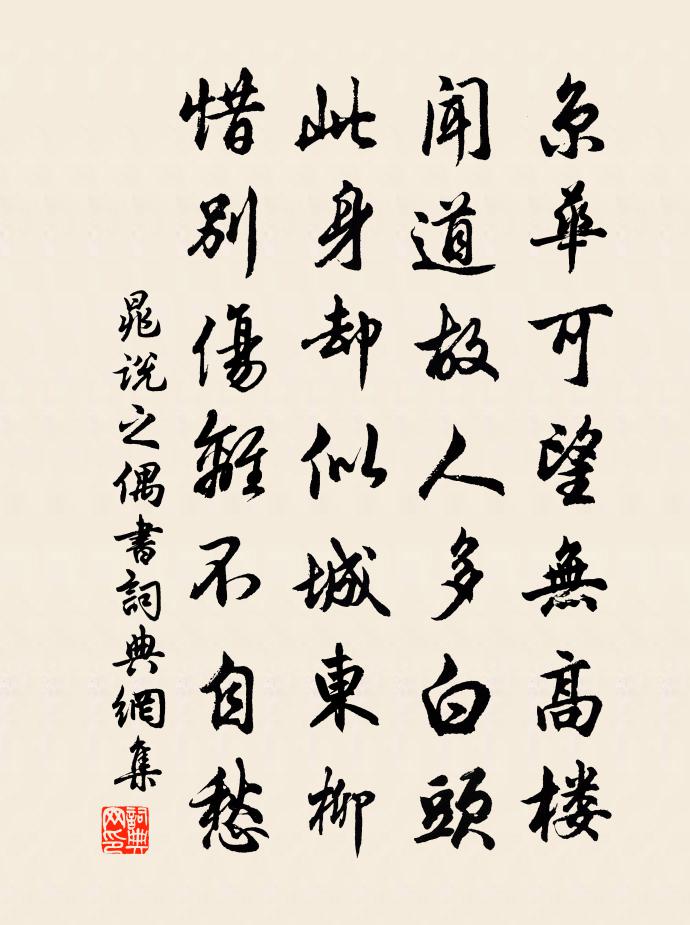 京華可望無高楼
聞道故人多白頭
此身却似城東柳
惜別傷離不自愁
晁說之偶書詞典網集
詞典网印